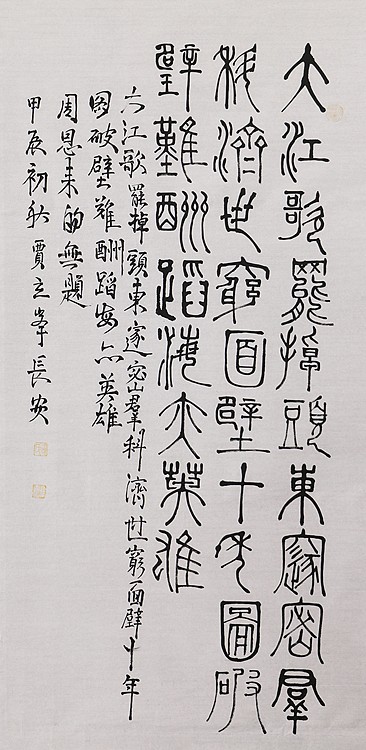 大江歌罷掉頭東邃密羣
科濟世窮面壁十年圖破
壁難酬蹈海亦英雄
大江歌罷掉頭東邃密羣科濟世窮面壁十年
圖破壁難酬蹈海亦英雄
周恩来的無題
甲辰初秋賈立峯長安